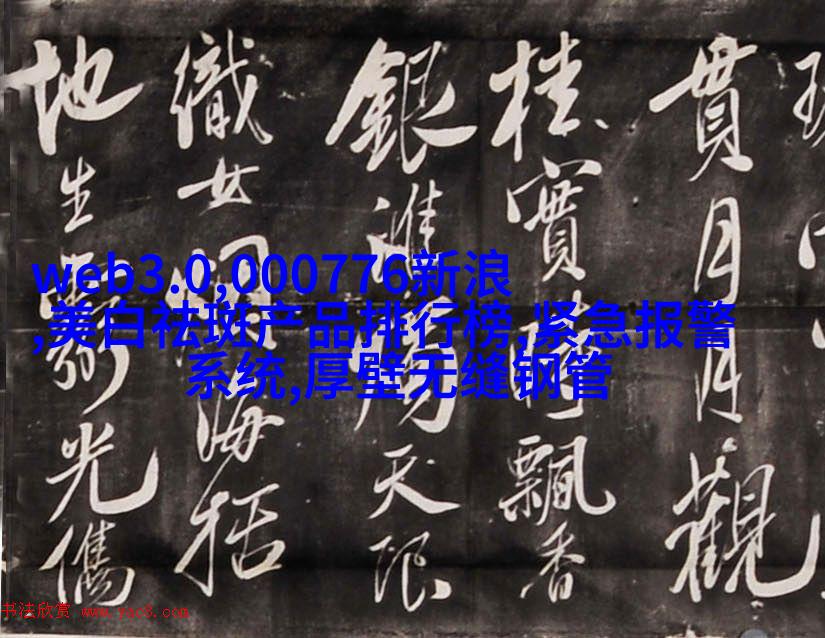 web3.0,000776新浪
,美白祛斑产品排行榜,紧急报警
系统,厚壁无缝钢管
貫月月觀
桂實時飄香
銀淮天限
織女海括
地生光儁
书法欣赏 www.yac8.com